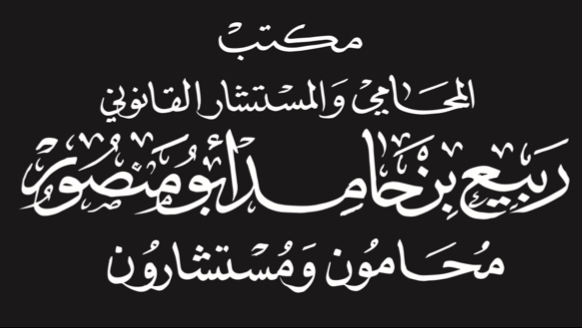 مكتب
المحامي والمستشار القانوني
ربيع بن حامد أبو منصور
محامون ومستشارون